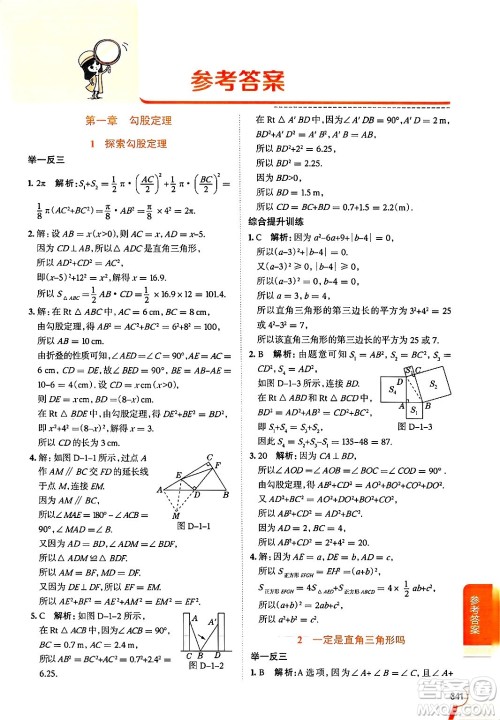 参考答案
第一章 勾股定理
1 探索勾股定理
举一反三
1. 2π 解析：S₁+S₂=1/2 π·(AC/2)²+1/2 π·(BC/2)²=
1/8 π(AC²+BC²)=1/8 π·AB²=1/8 π×4²=2π.
2. 解：设AC=AB=x，则AD=x-5.
因为CD⊥AB，所以△ADC是直角三角形，
所以AD²+CD²=AC²，
即(x-5)²+12²=x²，解得x=16.9.
所以S△ABC=1/2 AB·CD=1/2×16.9×12=101.4.
3. 解：在Rt△ABC中，AC=6 cm，BC=8 cm，
由勾股定理，得AB²=AC²+BC²=6²+8²=10²，
所以AB=10 cm.
由折叠的性质，得CD=DE，AC=AE=6 cm，
∠DEB=∠C=90°，所以BE=AB-AE=
10-6=4(cm). 设CD=x cm，
则DE=x cm，由勾股定理，得DE²+BE²=BD²，
即x²+4²=(8-x)²，解得x=3，
所以CD的长为3 cm.
4. 解：如图D-1-1，过点
A作AM∥BC，交FD延长线
于点M，连接EM.
因为AM∥BC，
所以∠MAE=∠ACB=
90°，∠MAD=∠B.
图D-1-1
因为AD=BD，∠ADM=∠BDF，
所以△ADM≌△BDF，
所以AM=BF，MD=DF.
又因为DE⊥DF，所以EF=EM.
所以AE²+BF²=AE²+AM²=EM²=EF².
5. C 解析：如图D-1-2，
在Rt△ACB中，因为
∠ACB=90°，
BC=0.7 m，AC=2.4 m，
所以AB²=0.7²+2.4²=
6.25.
图D-1-2
在Rt△A′BD中，因为∠A′DB=90°，A′D=2 m，
BD²+A′D²=A′B²，
所以BD²+2²=6.25，
所以BD²=2.25.
因为BD>0，
所以BD=1.5 m，
所以CD=BC+BD=0.7+1.5=2.2(m).
综合提升训练
1. C 解析：因为a²-6a+9+|b-4|=0，
所以(a-3)²+|b-4|=0.
因为(a-3)²≥0，|b-4|≥0，
所以a=3，b=4，
所以该直角三角形的第三边长的平方为3²+4²=
25或4²-3²=7.
所以该直角三角形的第三边长的平方为25或7.
2. B 解析：由题意可知S₁=AB²，S₂=BC²，S₃=
CD²，S₄=AD².
如图D-1-3，连接BD，
在Rt△ABD和Rt△BCD中，
BD²=AD²+AB²=CD²+BC²，
即S₁+S₄=S₃+S₂，
图D-1-3
因此S₂=S₁+S₄-S₃=135-48=87.
3. 20 解析：因为CA⊥BD，
所以由勾股定理，得
所以AB²+CD²=AD²+BC².
因为AD=2，BC=4，
所以AB²+CD²=2²+4²=20.
4. 解：因为AE=a，DE=b，AD=c，
所以S正方形EFGH=EH²=(a+b)²，
S正方形EFGH=4S△AED+S正方形ABCD=4×1/2 ab+c²，
所以(a+b)²=4×1/2 ab+c²，
所以a²+b²=c².
2 一定是直角三角形吗
举一反三
1. B 解析：A选项，因为∠A+∠B=∠C，∠A+
参考答案
841